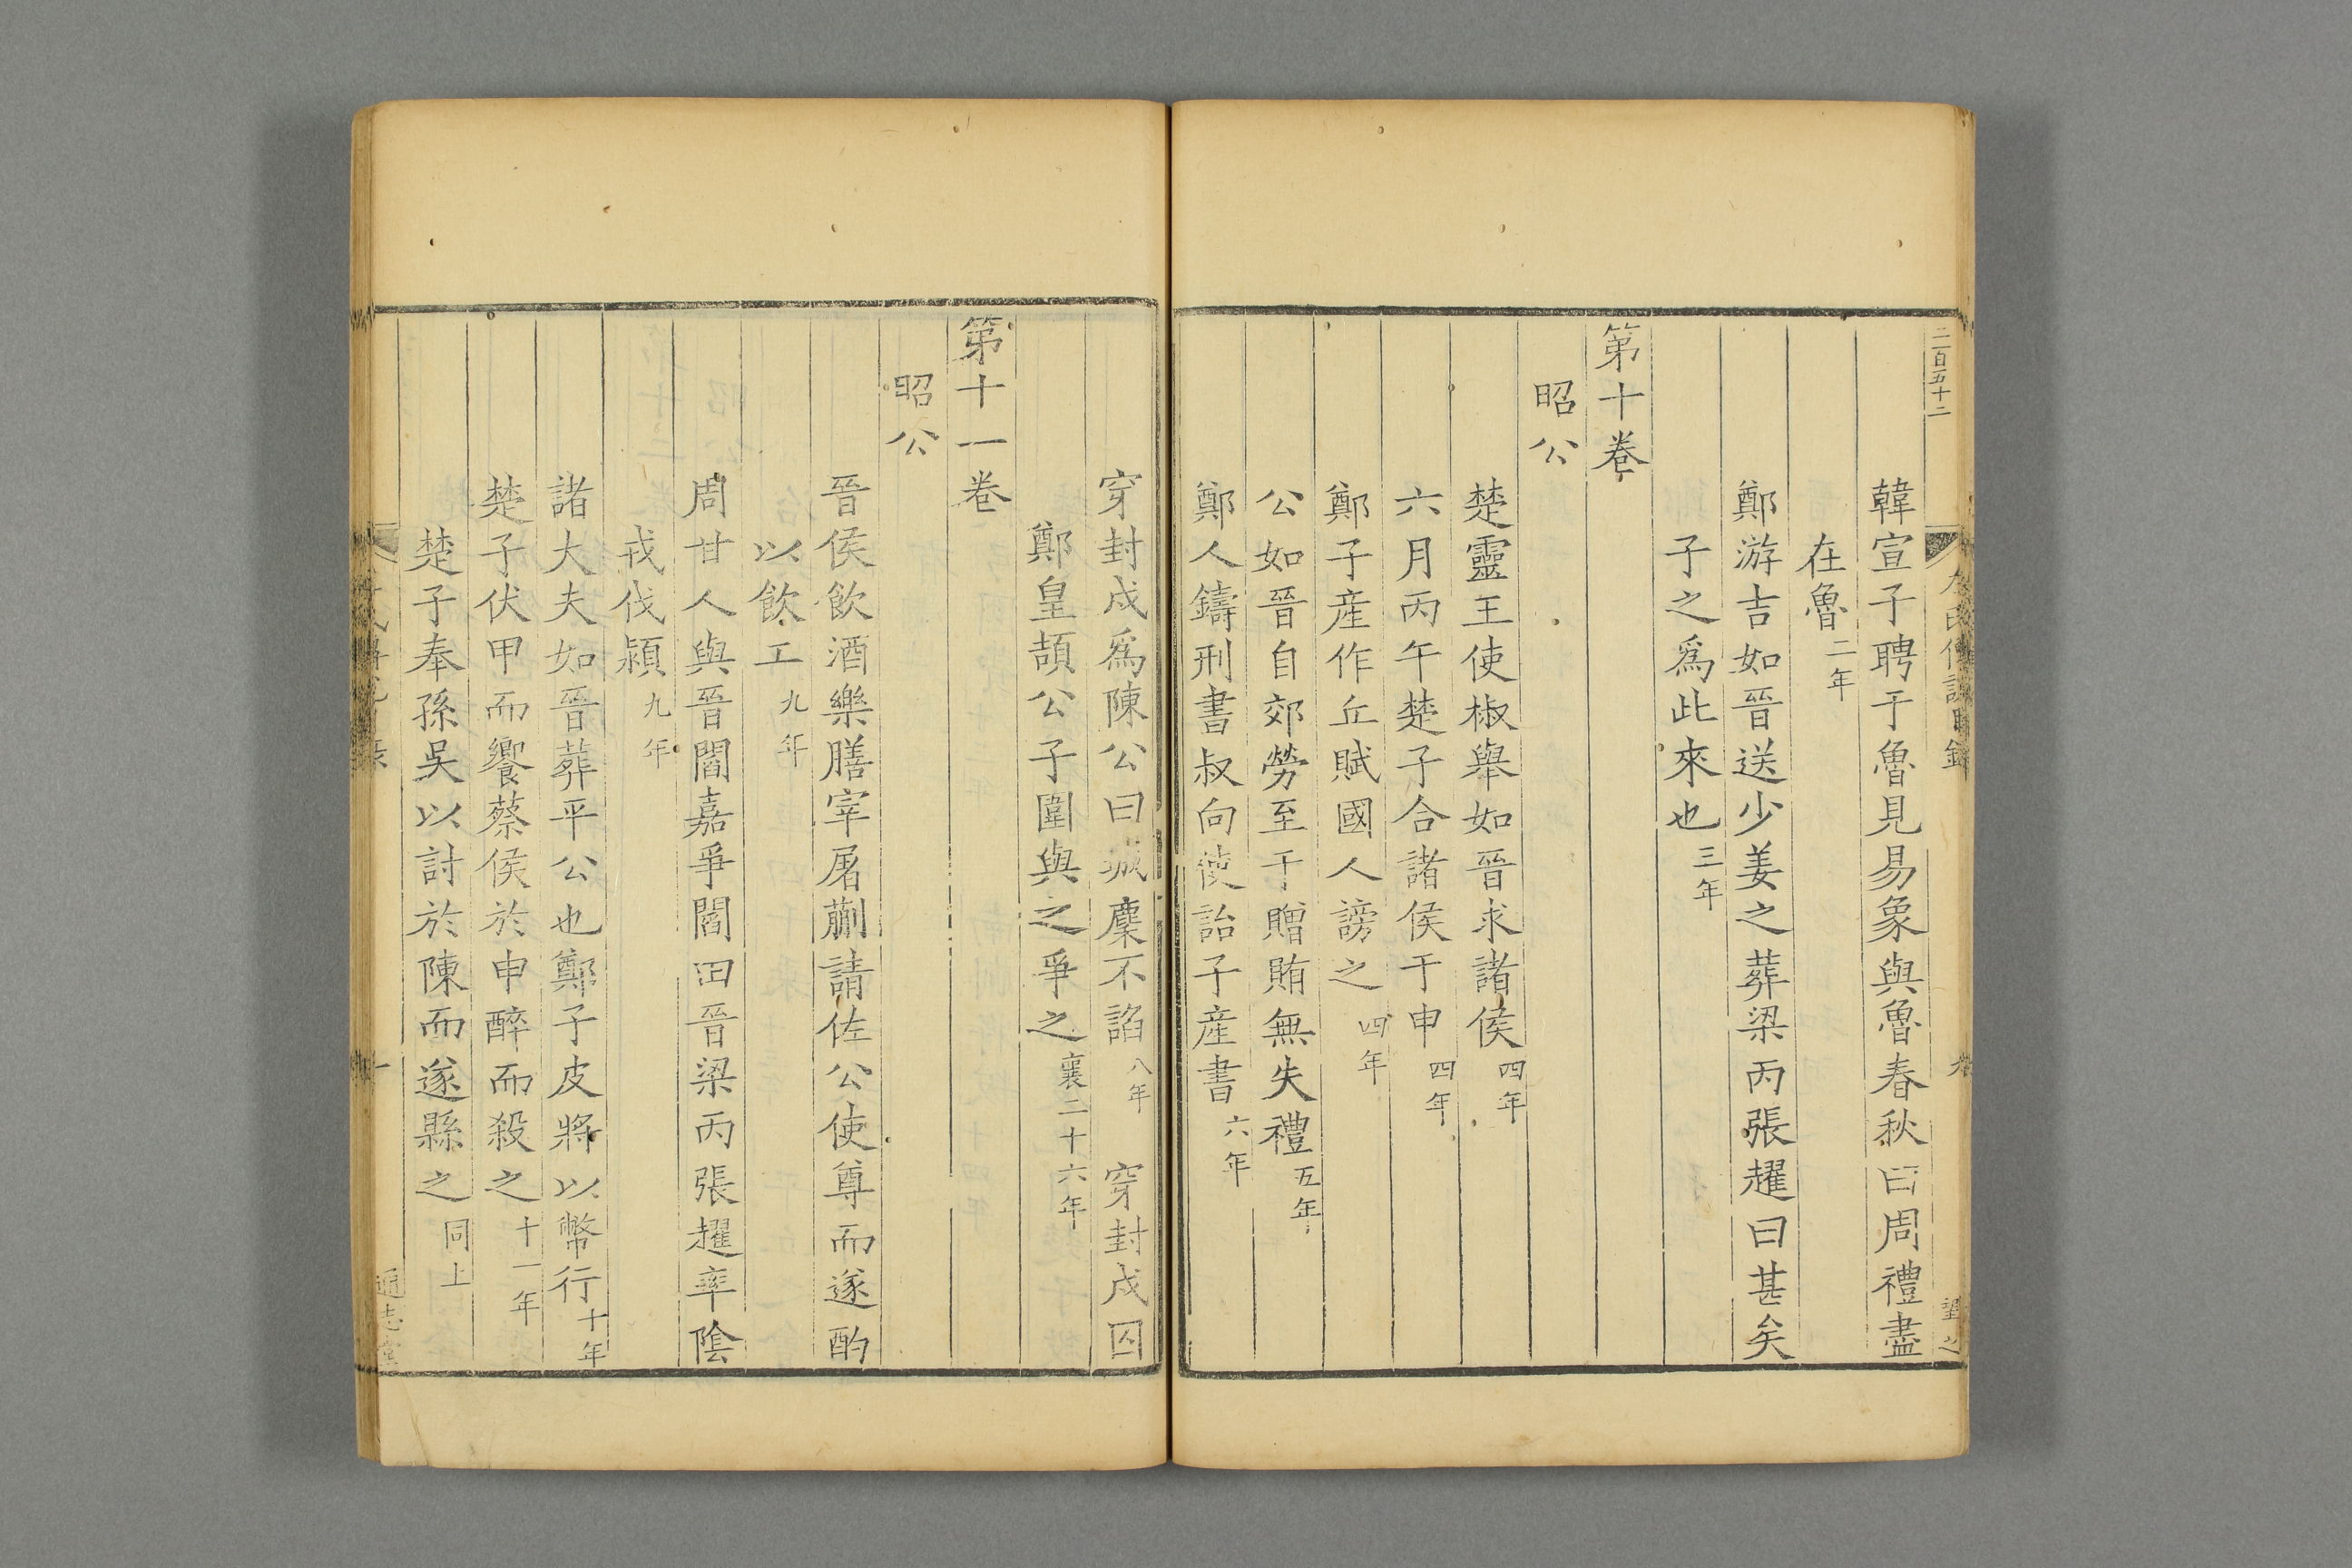 二百五十二
韓宣子聘于魯見易象與魯春秋曰周禮盡
在魯二年
鄭游吉如晉送少姜之葬梁丙張趯曰甚矣
子之爲此來也三年
第十卷
昭公
楚靈王使椒舉如晉求諸侯四年
六月丙午楚子合諸侯于申四年
鄭子産作丘賦國人謗之四年
公如晉自郊勞至于贈賄無失禮五年
鄭人鑄刑書叔向使詒子産書六年
穿封戌爲陳公曰城麇不諂八年 穿封戌囚
鄭皇頡公子圍與之爭之襄二十六年
第十一卷
昭公
晉侯飲酒樂膳宰屠蒯請佐公使尊而遂酌
以飲工九年
周甘人與晉閻嘉爭閻田晉梁丙張趯率陰
戎伐潁九年
諸大夫如晉葬平公也鄭子皮將以幣行十年
楚子伏甲而饗蔡侯於申醉而殺之十一年
楚子奉孫吳以討於陳而遂縣之同上
通志堂